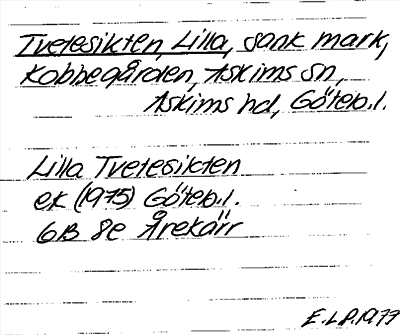 Tvetesikten, Lilla, sank mark,
Kobbegården, Askims sn,
Askims hd, Göteb.l.
Lilla Tvetesikten
ek (1975) Göteb.l.
6B 8e Årekärr
E.L.P. 1977